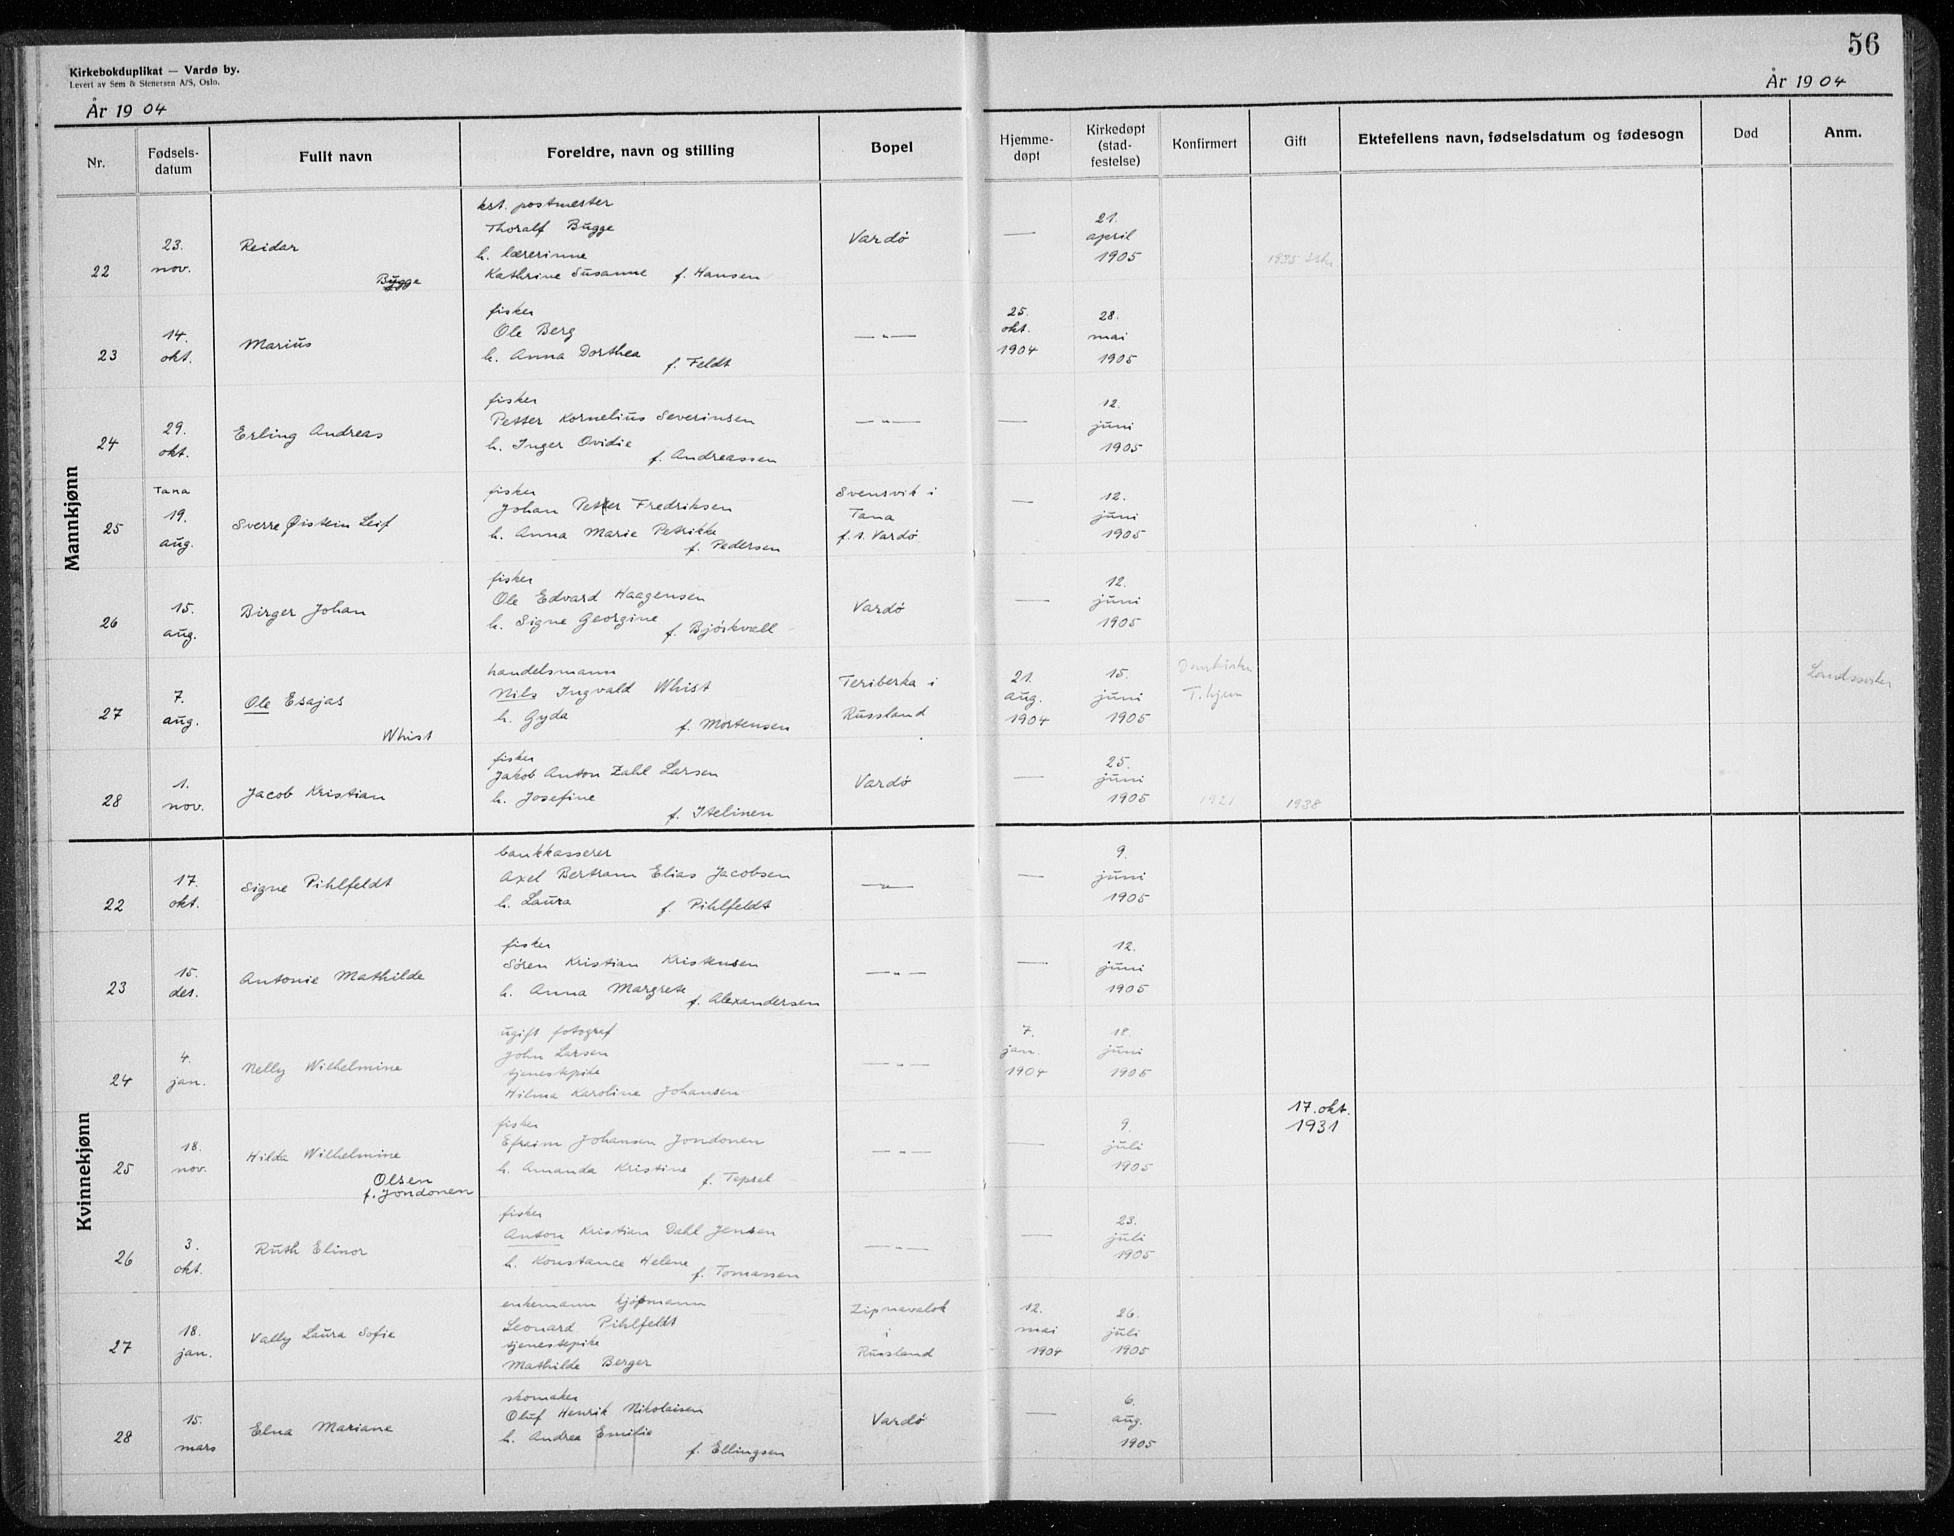 56
Kirkebokduplikat — Vardø by.
Levert av Sem & Stenersen A/S, Oslo.
År 1904
År 1904
Nr.
Fødsels-
datum
Fullt navn
Foreldre, navn og stilling
Bopel
Hjemme-
døpt
Kirkedøpt
(stad-
festelse)
Konfirmert
Gift
Ektefellens navn, fødselsdatum og fødesogn
Død
Anm.
Mannkjønn
kst. postmester
Thoralf Bugge
h. lærerinne
Kathrine Susanne f. Hansen
22
23.
nov.
Reidar
Bugge
Vardø
—
21.
april
1905
1935
23
14.
okt.
Marius
fisker
Ole Berg
h. Anna Dorthea
f. Feldt
— " —
25.
okt.
1904
28.
mai
1905
24
29.
okt.
Erling Andreas
fisker
Petter Kornelius Severinsen
h. Inger Ovidie
f. Andreassen
— " —
—
12.
juni
1905
25
Tana
19.
aug.
Sverre Øistein Leif
fisker
Johan Petter Fredriksen
h. Anna Marie Petrikke
f. Pedersen
Svensvik i
Tana
f. t. Vardø
—
12.
juni
1905
26
15.
aug.
Birger Johan
fisker
Ole Edvard Haagensen
h. Signe Georgine
f. Bjørkvall
Vardø
—
12.
juni
1905
27
7.
aug.
Ole Esajas
Whist
handelsmann
Nils Ingvald Whist
h. Gyda
f. Mortensen
Teriberka i
Russland
21.
aug.
1904
15.
juni
1905
Domkirken
T.hjem
28
1.
nov.
Jacob Kristian
fisker
Jakob Anton Zahl Larsen
h. Josefine
f. Itelinen
Vardø
—
25.
juni
1905
1921
1938
Kvinnekjønn
22
17.
okt.
Signe Pihlfeldt
bankkasserer
Axel Bertram Elias Jacobsen
h. Laura
f. Pihlfeldt
— " —
—
9.
juni
1905
23
15.
des.
Antonie Mathilde
fisker
Sören Kristian Kristensen
h. Anna Margrete
f. Alexandersen
— " —
—
12.
juni
1905
24
4.
jan.
Nelly Wilhelmine
ugift fotograf
John Larsen
tjenestepike
Hilma Karoline Johansen
— " —
7.
jan.
1904
18.
juni
1905
25
18.
nov.
Hilda Wilhelmine
Olsen
f. Jondonen
fisker
Efraim Johansen Jondonen
h. Amanda Kristine
f. Tepsel
— " —
—
9.
juli
1905
17. okt.
1931
26
3.
okt.
Ruth Elinor
fisker
Anton Kristian Dahl Jensen
h. Konstance Helene
f. Tomassen
— " —
—
23.
juli
1905
27
18.
jan.
Vally Laura Sofie
enkemann kjøpmann
Leonard Pihlfeldt
tjenestepike
Mathilde Berger
Zipnavalok
i
Russland
12.
mai
1904
26.
juli
1905
28
15.
mars
Elna Mariane
skomaker
Oluf Henrik Nikolaisen
h. Andrea Emilie
f. Ellingsen
Vardø
—
6.
aug.
1905